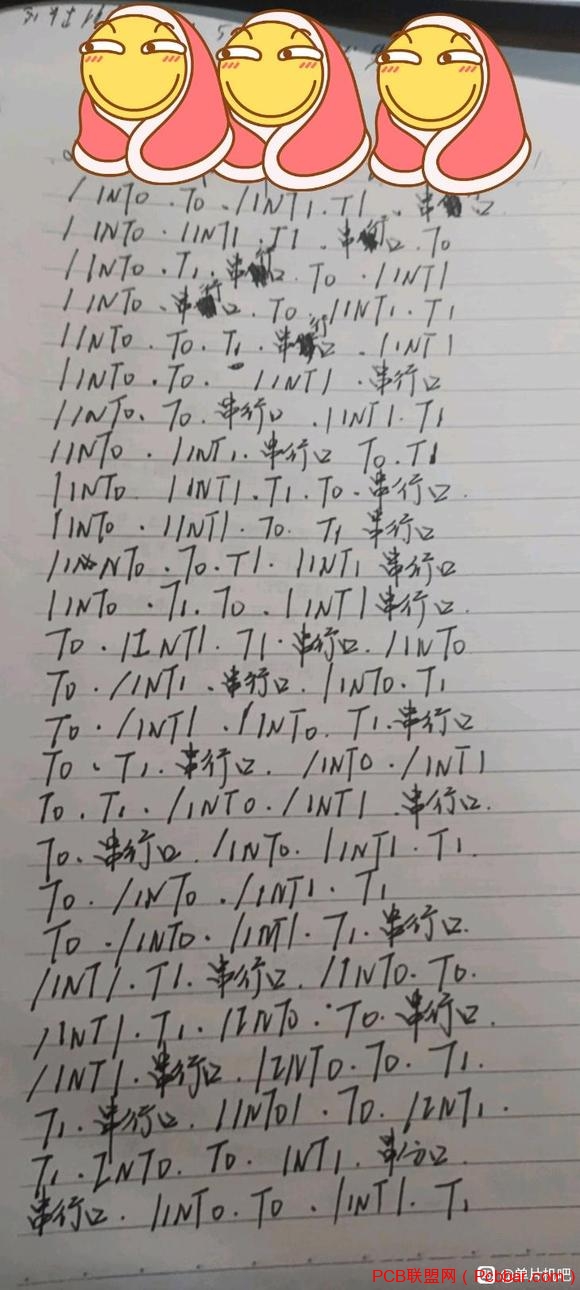 /INT0 . T0 . /INT1 . T1 . 串行口
/INT0 . /INT1 . T1 . 串行口 . T0
/INT0 . T1 . 串行口 . T0 . /INT1
/INT0 . 串行口 . T0 . /INT1 . T1
/INT0 . T0 . T1 . 串行口 . /INT1
/INT0 . T0 . /INT1 . 串行口
/INT0 . T0 . 串行口 . /INT1 . T1
/INT0 . /INT1 . 串行口 T0 . T1
/INT0 /INT1 . T1 . T0 . 串行口 .
/INT0 . /INT1 . T0 . T1 串行口
/INT0 . T0 . T1 . /INT1 串行口
/INT0 . T1 . T0 . /INT1 串行口 .
T0 . /INT1 . T1 . 串行口 . /INT0
T0 . /INT1 . 串行口 . /INT0 . T1
T0 . /INT1 . /INT0 . T1 . 串行口
T0 . T1 . 串行口 . /INT0 . /INT1
T0 . T1 . /INT0 . /INT1 . 串行口 .
T0 . 串行口 . /INT0 . /INT1 . T1 .
T0 . /INT0 . /INT1 . T1
T0 . /INT0 . /INT1 . T1 . 串行口 .
/INT1 . T1 . 串行口 . /INT0 . T0 .
/INT1 . T1 . /INT0 . T0 . 串行口 .
/INT1 . 串行口 . /INT0 . T0 . T1 .
T1 . 串行口 . /INT0 . T0 . /INT1 .
T1 . INT0 . T0 . INT1 . 串行口 .
串行口 . /INT0 . T0 . /INT1 . T1
PCB联盟网（Pcbbar.com）
@单片机吧